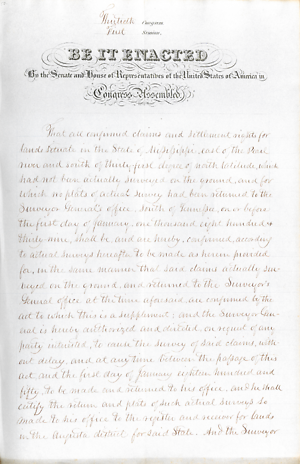 Thirtieth Congress
First Session,
BE IT ENACTED
By the Senate and House of Representatives of the United States of America in
Congress Assembled
That all confirmed claims and settlement rights for
lands situate in the State of Mississippi, east of the Pearl
river and south of thirty first degree of north latitude, which
had not been actually surveyed on the ground, and for
which no plats of actual survey had been returned to the
Surveyor General's office, South of Tennessee, on or before
the first day of January, one thousand eight hundred &
thirty-nine, shall be, and are hereby, confirmed, according
to actual surveys hereafter to be made as herein provided
for, in the same manner that said claims actually sur-
veyed on the ground, and returned to the Surveyor
General office at the time aforesaid, are confirmed by the
act to which this is a supplement; and the Surveyor Gen-
eral is hereby authorized and directed, on request of any
party interested, to cause the survey of said claims, with-
out delay, and at any time between the passage of this
act and the first day of January eighteen hundred and
fifty, to be made and returned to his office, and he shall
certify the return and plats of such actual surveys so
made to his office to the register and receiver for lands
in the Augusta district for said State. And the Surveyor